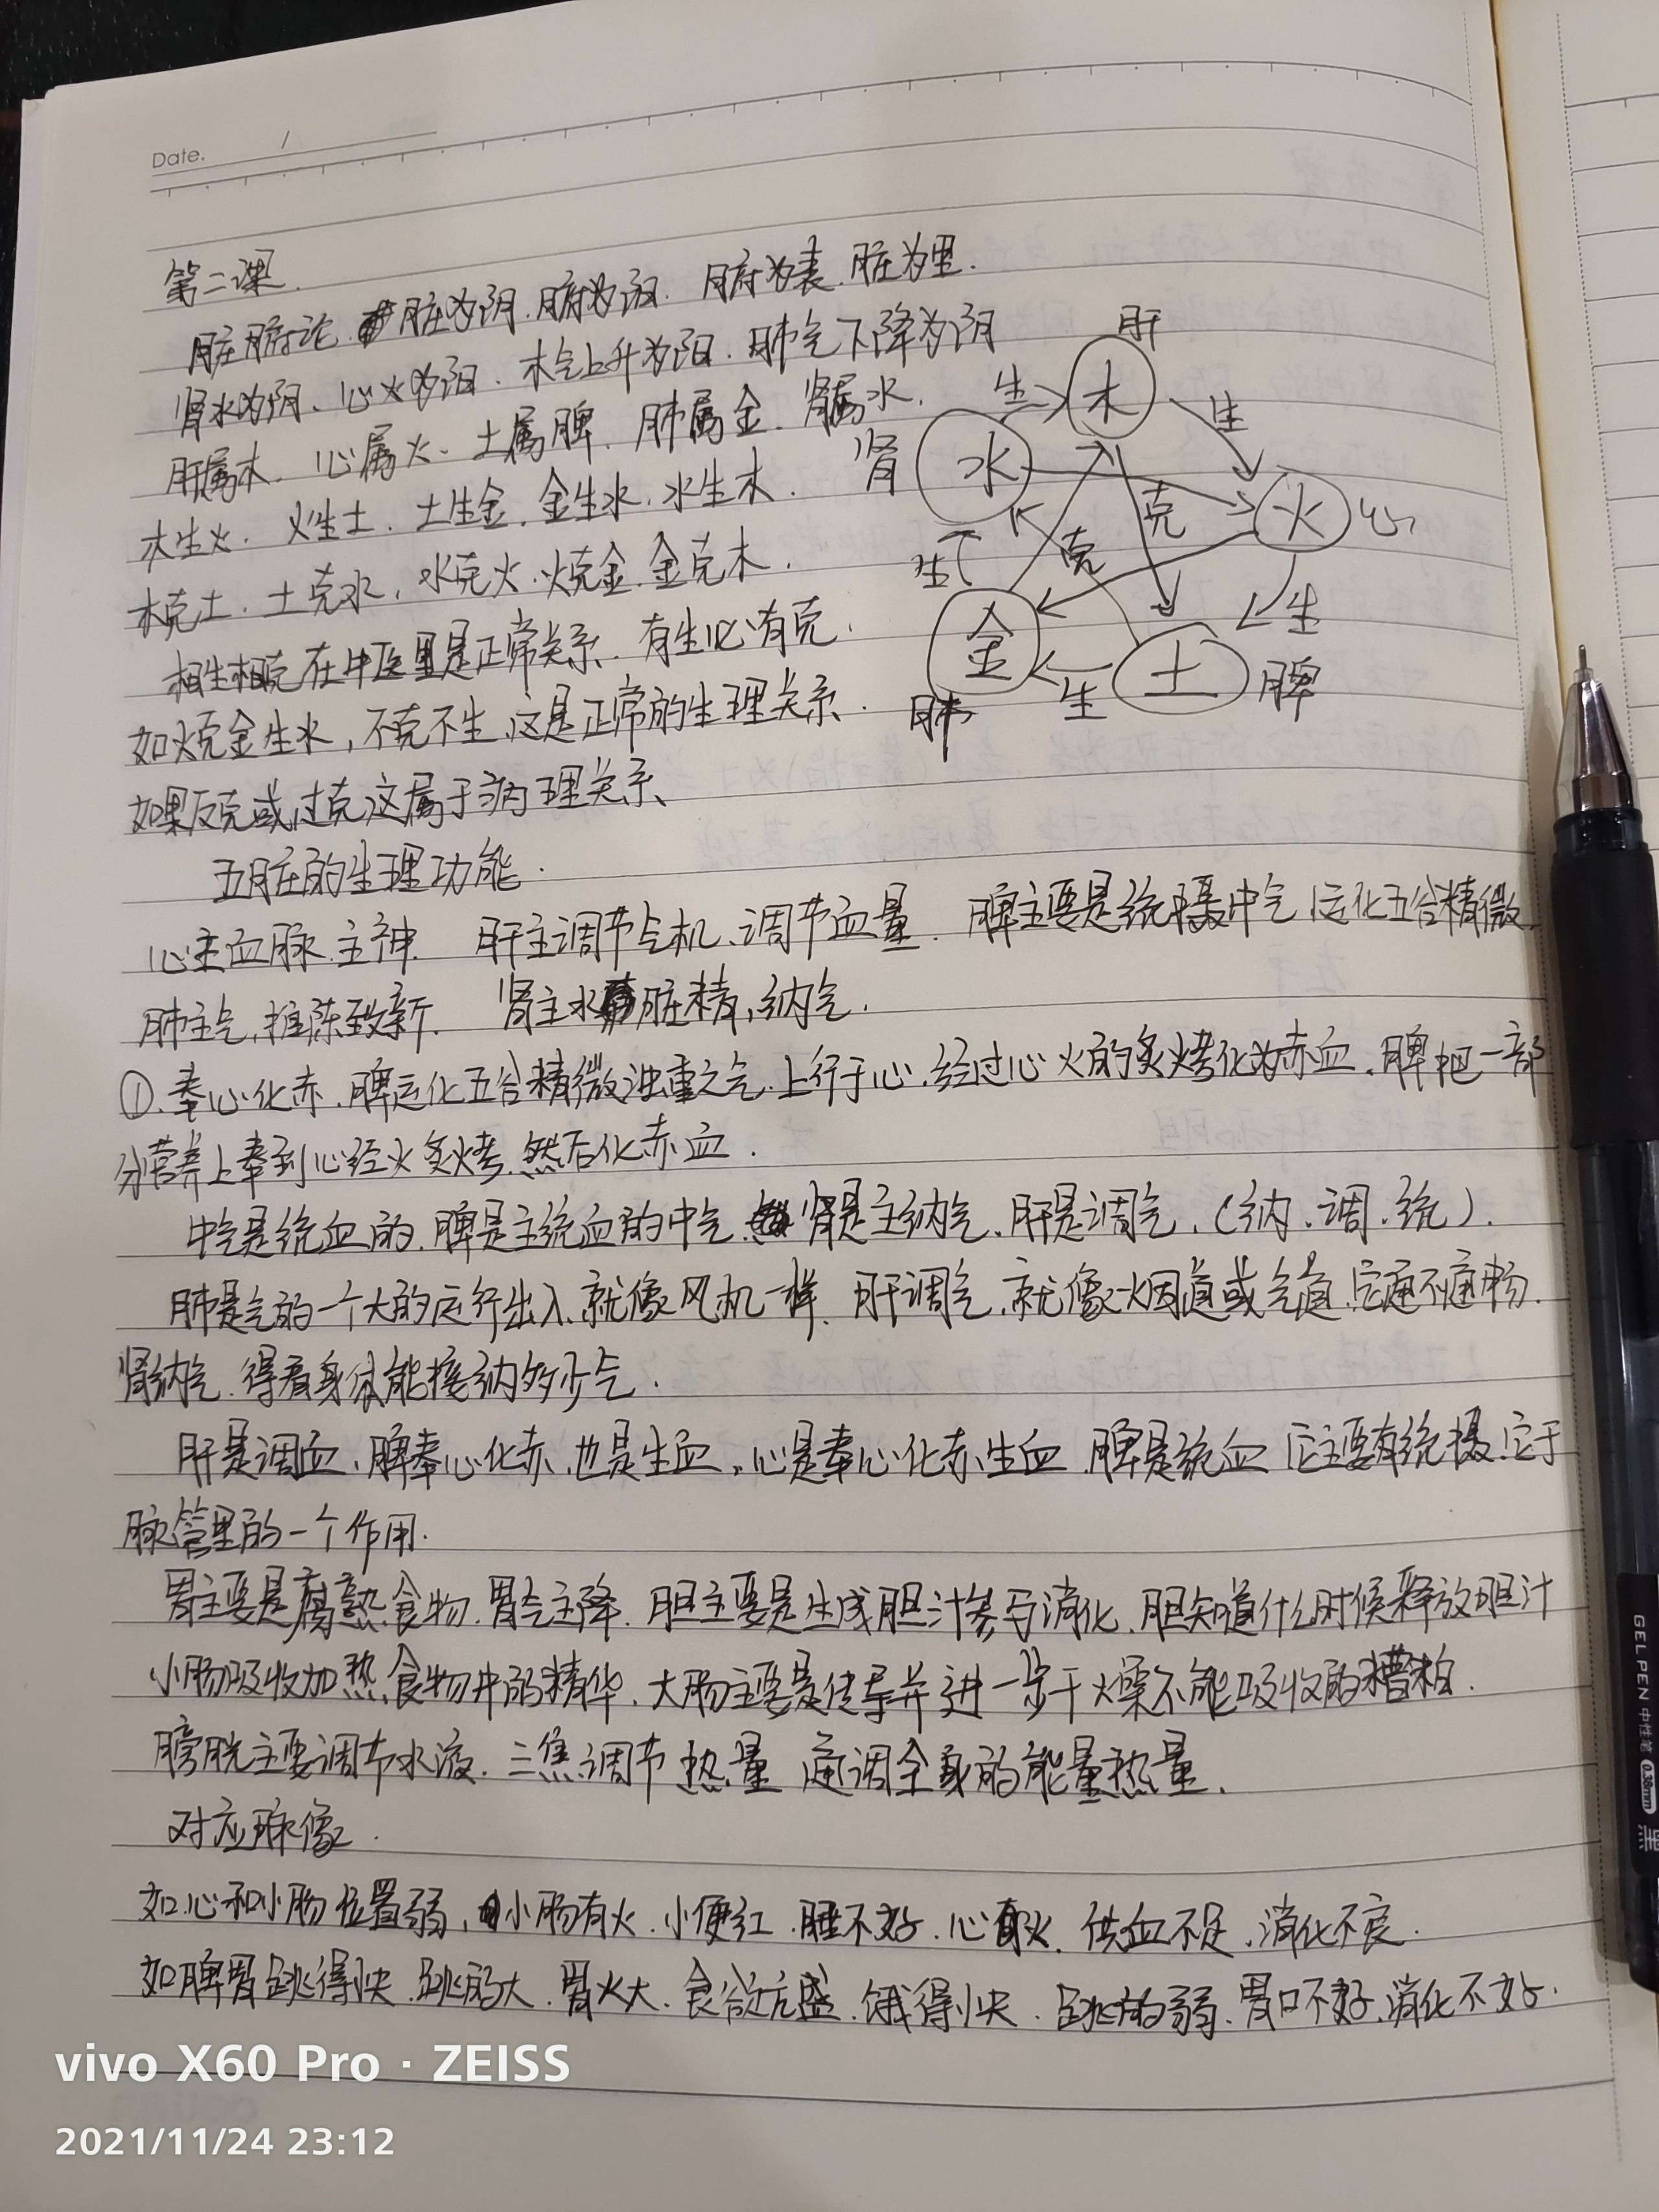 Date. /
第二课.
脏腑论. 脏为阴.腑为阳. 腑为表.脏为里.
肾水为阴、心火为阳. 木气上升为阳. 肺气下降为阴
肝属木. 心属火. 土属脾. 肺属金. 肾属水.
木生火. 火生土. 土生金. 金生水. 水生木.
木克土. 土克水, 水克火. 火克金. 金克木.
相生相克在中医里是正常关系. 有生必有克.
如火克金生水, 不克不生、这是正常的生理关系.
如果反克或过克这属于病理关系、
肝
木
生
生
肾
水
火
心
克
克
生
生
金
土
脾
肺
生
五脏的生理功能.
心主血脉.主神. 肝主调节气机、调节血量. 脾主要是统摄中气 运化五谷精微.
肺主气,推陈致新. 肾主水 脏精,纳气.
①.奉心化赤.脾运化五谷精微浊重之气.上行于心.经过心火的炙烤化为赤血.脾把一部
分营养上奉到心经火炙烤.然后化赤血.
中气是统血的.脾是主统血的中气. 肾是主纳气、肝是调气.(纳.调.统).
肺是气的一个大的运行出入、就像风机一样. 肝调气.就像烟道或气道.它通不通畅.
肾纳气.得看身体能接纳多少气.
肝是调血、脾奉心化赤.也是生血.心是奉心化赤.生血 脾是统血 它主要有统摄.它于
脉管里的一个作用.
胃主要是腐熟食物.胃气主降. 胆主要是生成胆汁参与消化.胆知道什么时候释放胆汁
小肠吸收加热食物中的精华.大肠主要是传导并进一步干燥不能吸收的糟粕.
膀胱主要调节水液. 三焦调节热量 通调全身的能量热量.
对应脉像.
如心和小肠位置弱, 小肠有火.小便红.睡不好.心有火. 供血不足.消化不良.
如脾胃跳得快.跳的大.胃火大.食欲亢盛.饿得快. 跳的弱.胃口不好.消化不好.
GEL PEN 中性笔 0.38mm 黑
vivo X60 Pro · ZEISS
2021/11/24 23:12